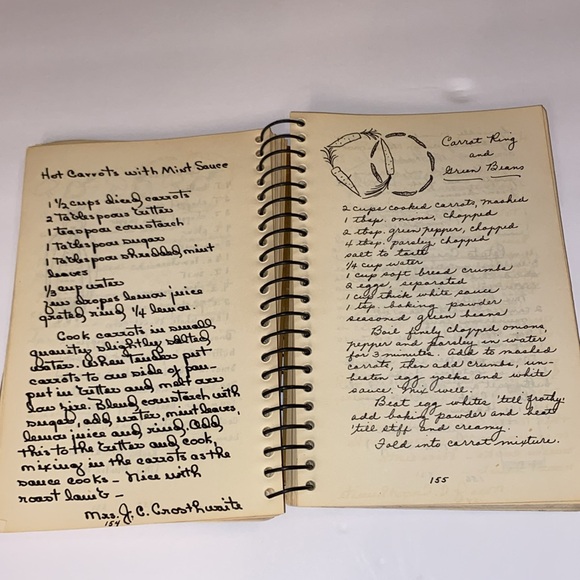 Hot Carrots with Mint Sauce
1 1/2 cups diced carrots
2 Tablespoons butter
1 teaspoon cornstarch
1 Tablespoon sugar
1 Tablespoon shredded mint
leaves
1/3 cup water
few drops lemon juice
grated rind 1/4 lemon.
Cook carrots in small
quantity slightly salted
water. When tender put
carrots to one side of pan -
put in butter and melt over
low fire. Blend cornstarch with
sugar, add water, mint leaves,
lemon juice and rind. Add
this to the butter and cook,
mixing in the carrots as the
sauce cooks - Nice with
roast lamb -
Mrs. J. C. Crosthwaite
154
Carrot Ring
and
Green Beans
2 cups cooked carrots, mashed
1 tbsp. onions, chopped
2 tbsp. green pepper, chopped
4 tbsp. parsley chopped
salt to taste
1/4 cup water
1 cup soft bread crumbs
2 eggs, separated
1 cup thick white sauce
1 tsp. baking powder
seasoned green beans
Boil finely chopped onions,
pepper and parsley in water
for 3 minutes. Add to mashed
carrots, then add crumbs, un-
beaten egg yolks and white
sauce. Mix well.
Beat egg whites 'till frothy;
add baking powder and beat
'till stiff and creamy.
Fold into carrot mixture.
155